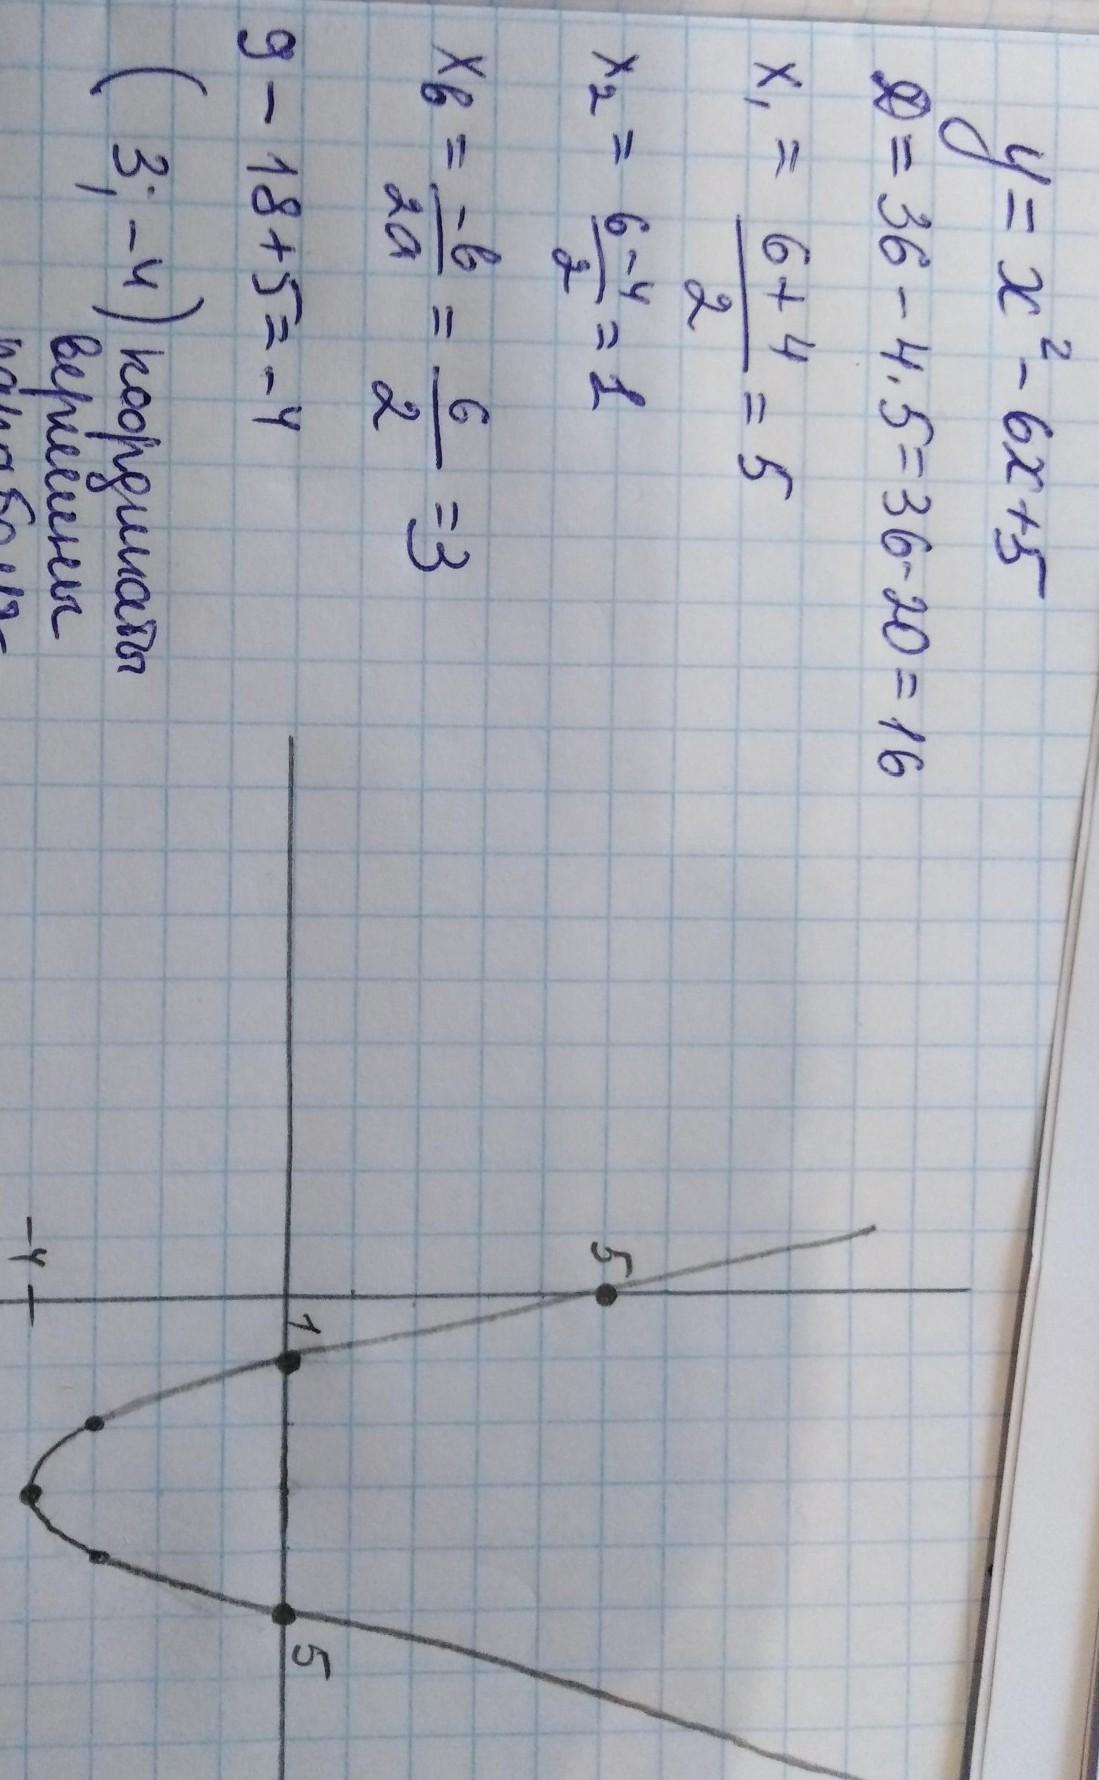 y = x² - 6x + 5
D = 36 - 4·5 = 36 - 20 = 16
x₁ = (6+4)/2 = 5
x₂ = (6-4)/2 = 1
xв = -в/2a = 6/2 = 3
9 - 18 + 5 = -4
(3; -4) координаты
вершины
5
1
5
-4